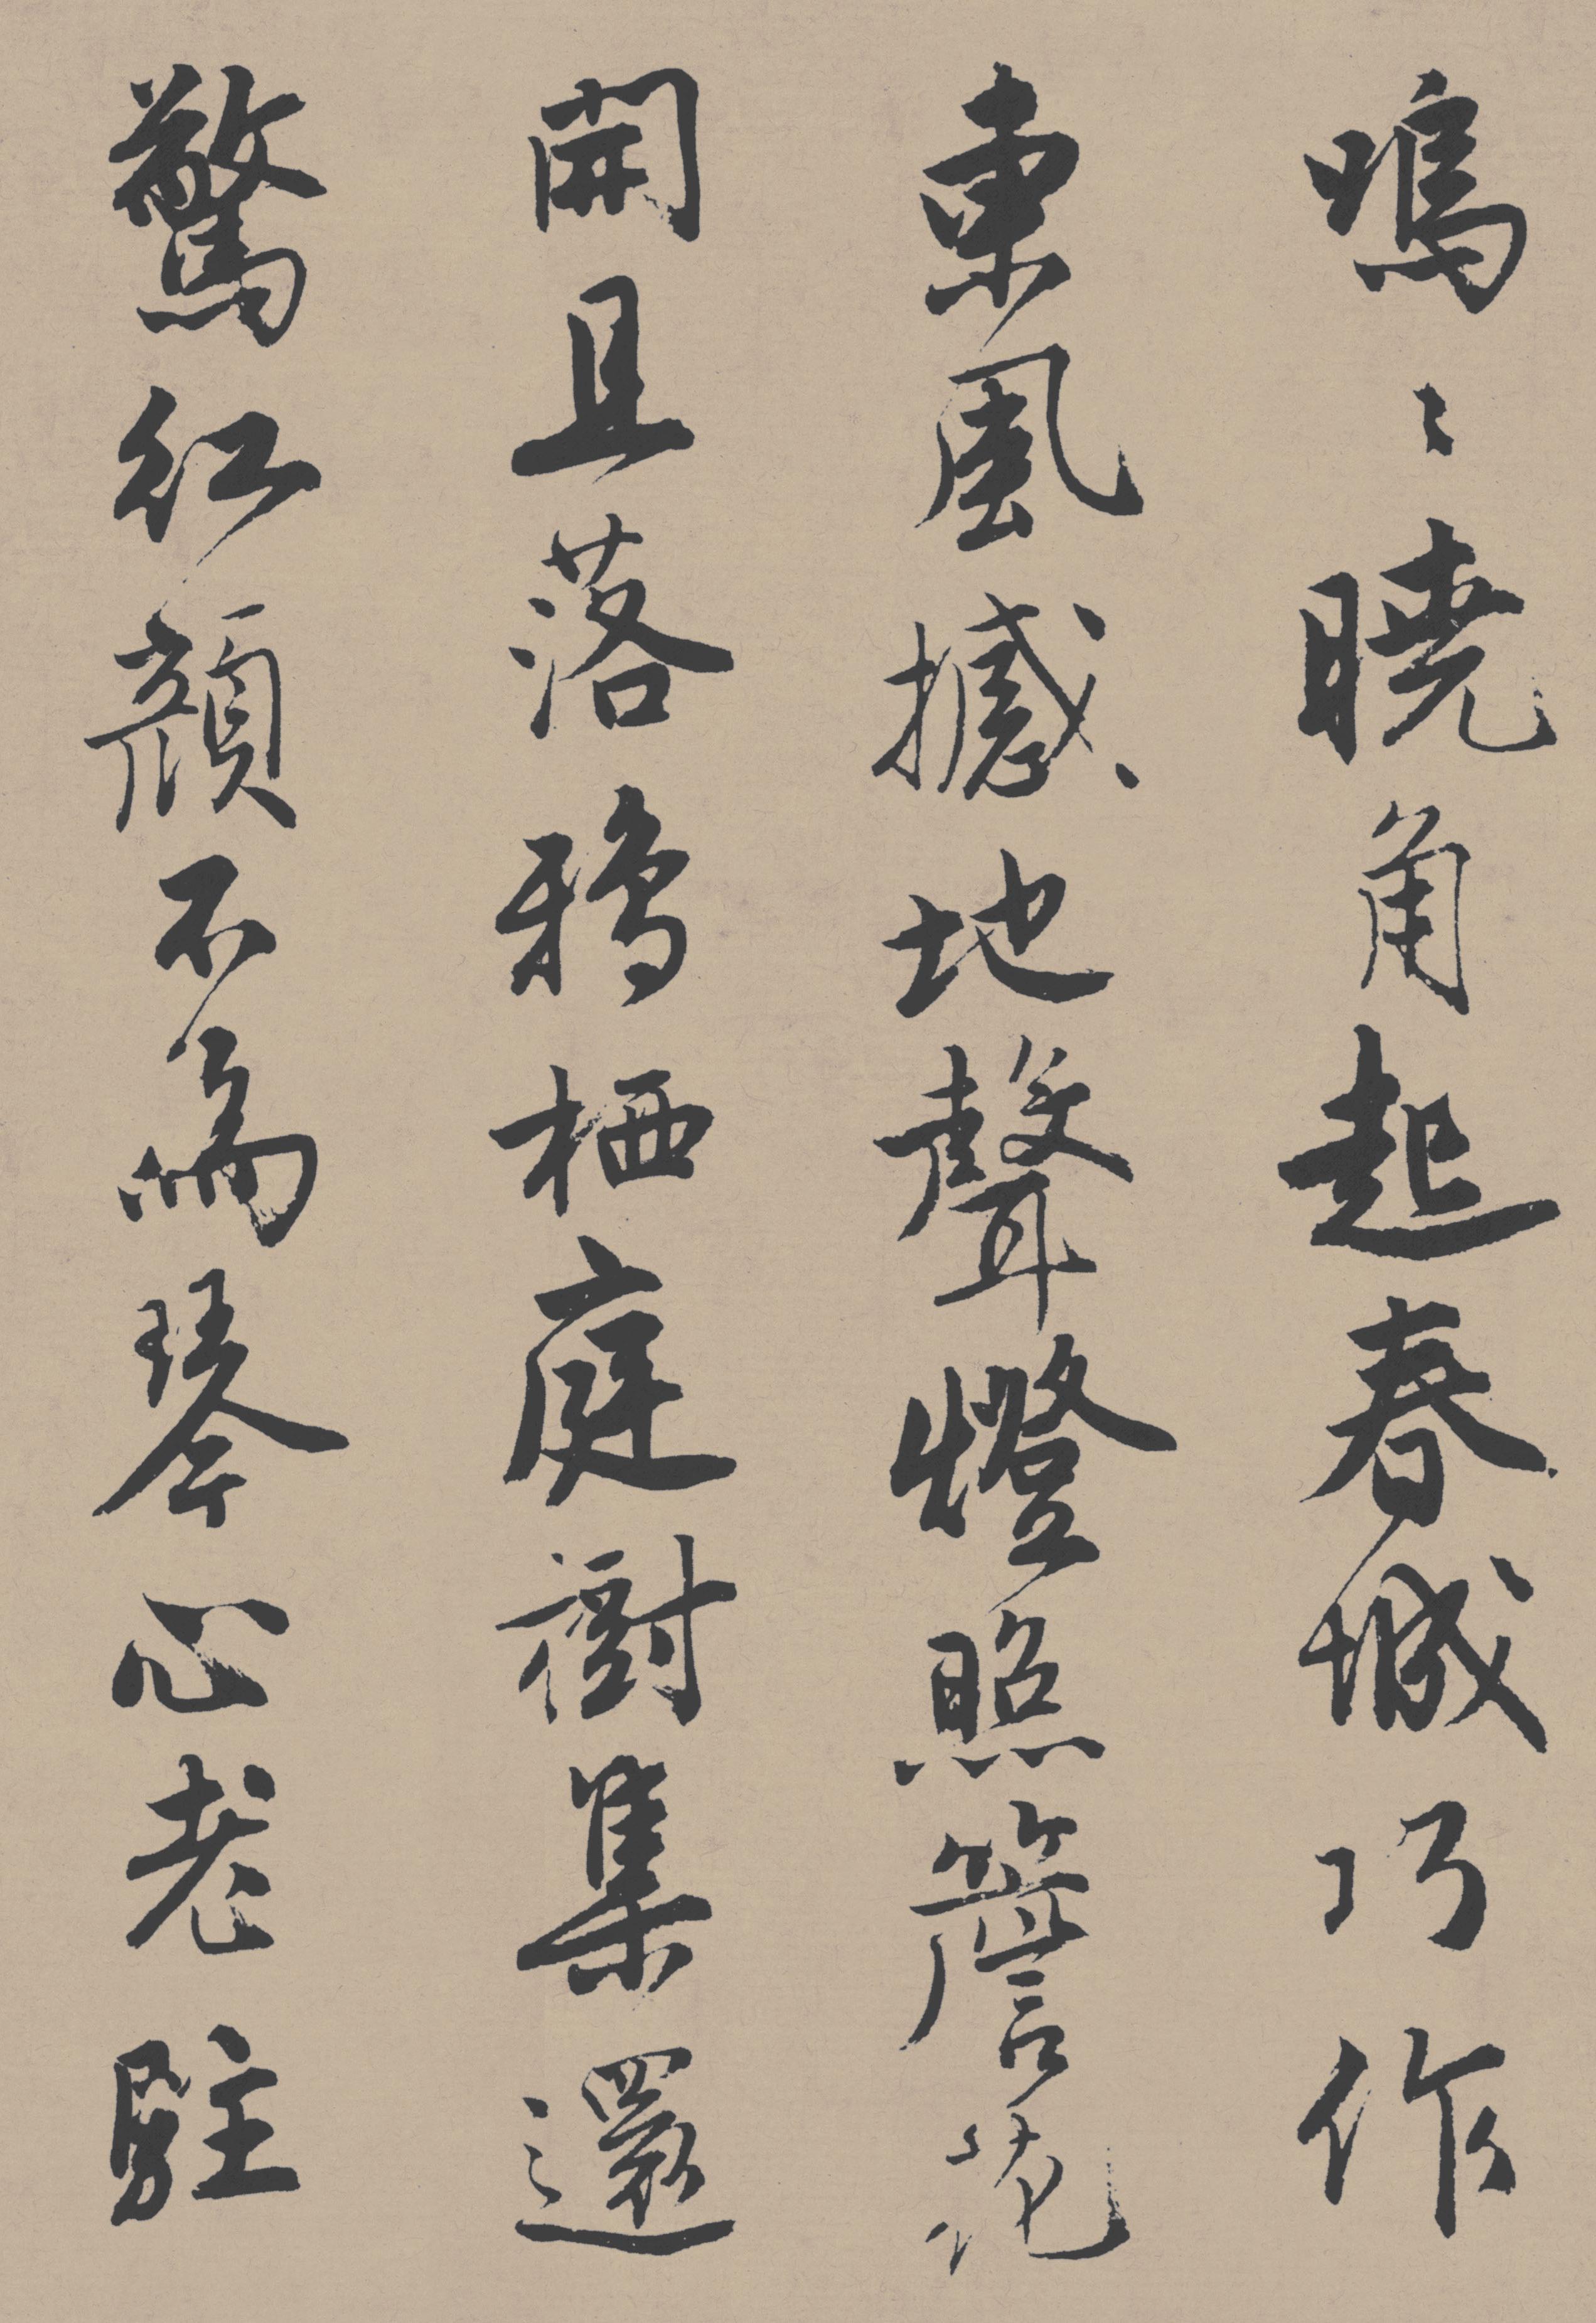 嗚〻曉角起春城巧作
東風撼地聲燈照簷花
開且落鴉栖庭樹集還
驚紅顏不為琴心老駐